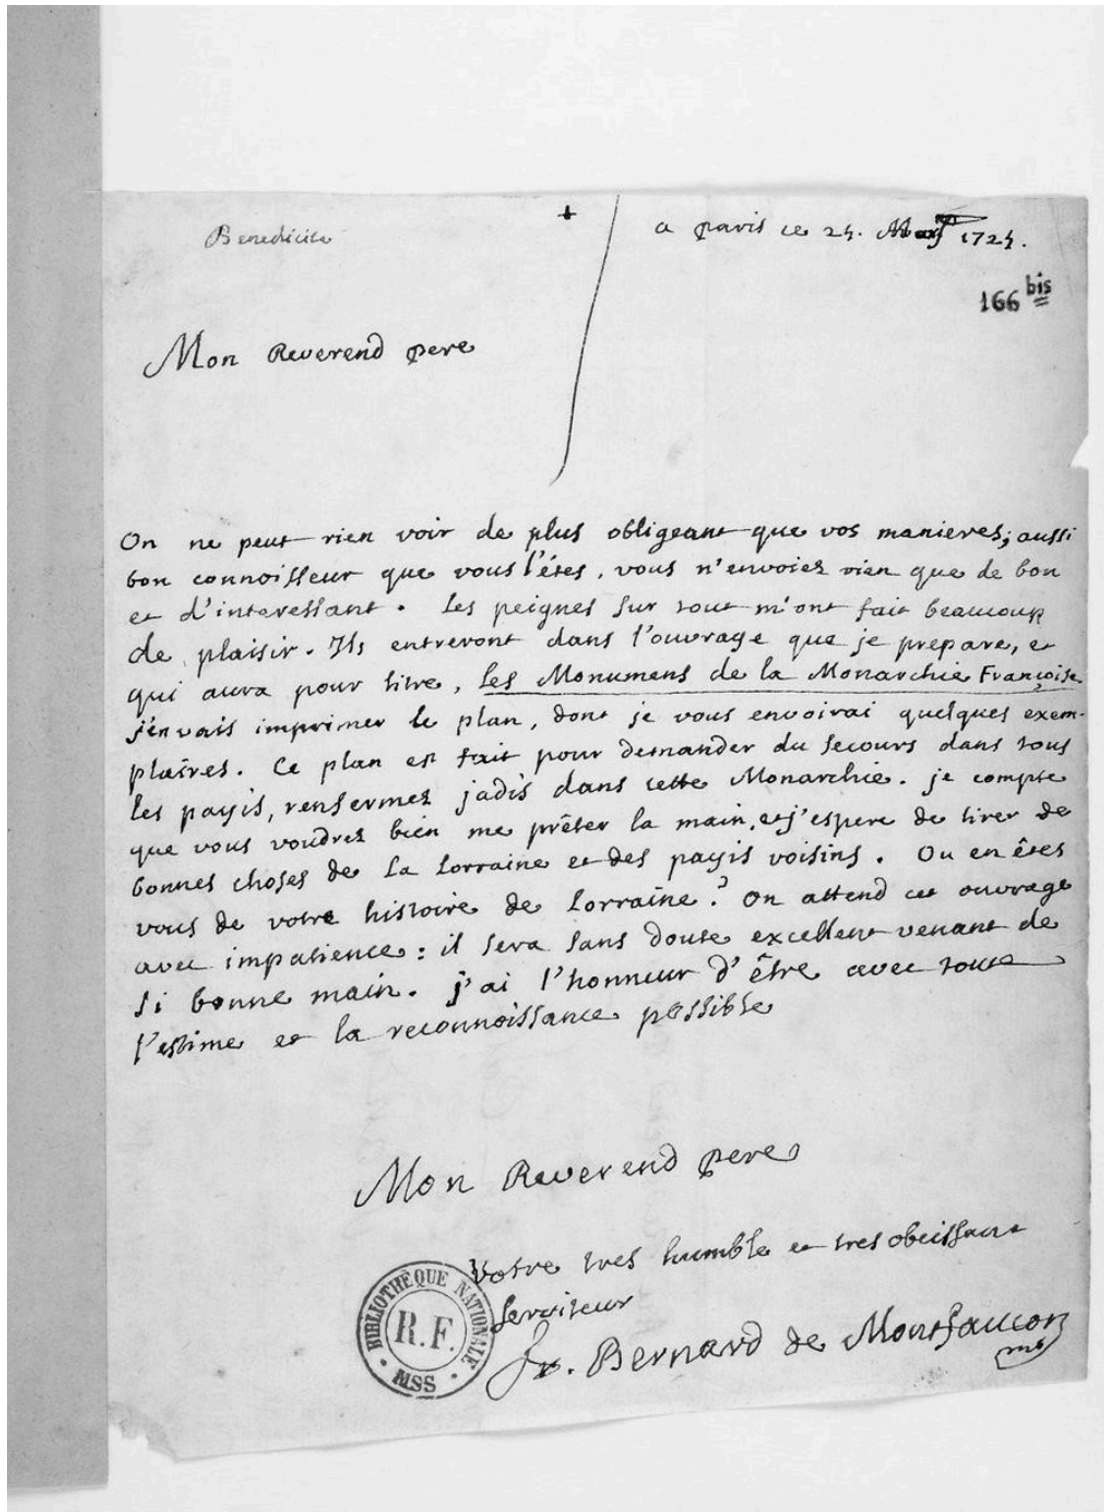 Benedicite
+
a paris ce 24. Mars 1724.
166 bis
Mon Reverend pere
On ne peut rien voir de plus obligeant que vos manieres; aussi
bon connoisseur que vous l'étes, vous n'envoiez rien que de bon
et d'interessant. Les peignes sur tout m'ont fait beaucoup
de plaisir. Ils entreront dans l'ouvrage que je prepare, et
qui aura pour titre, Les Monumens de la Monarchie Françoise
j'en vais imprimer le plan, dont je vous envoirai quelques exem-
plaires. Ce plan est fait pour demander du secours dans tous
les payis, renfermez jadis dans cette Monarchie. je compte
que vous voudrez bien me prêter la main, et j'espere de tirer de
bonnes choses de La Lorraine et des payis voisins. Ou en êtes
vous de votre histoire de Lorraine? On attend cet ouvrage
avec impatience: il sera sans doute excellent venant de
si bonne main. j'ai l'honneur d'être avec toute
l'estime et la reconnoissance possible
Mon Reverend pere
Votre tres humble et tres obeissant
serviteur
fr. Bernard de Montfaucon
mb
BIBLIOTHÈQUE NATIONALE
R.F.
MSS